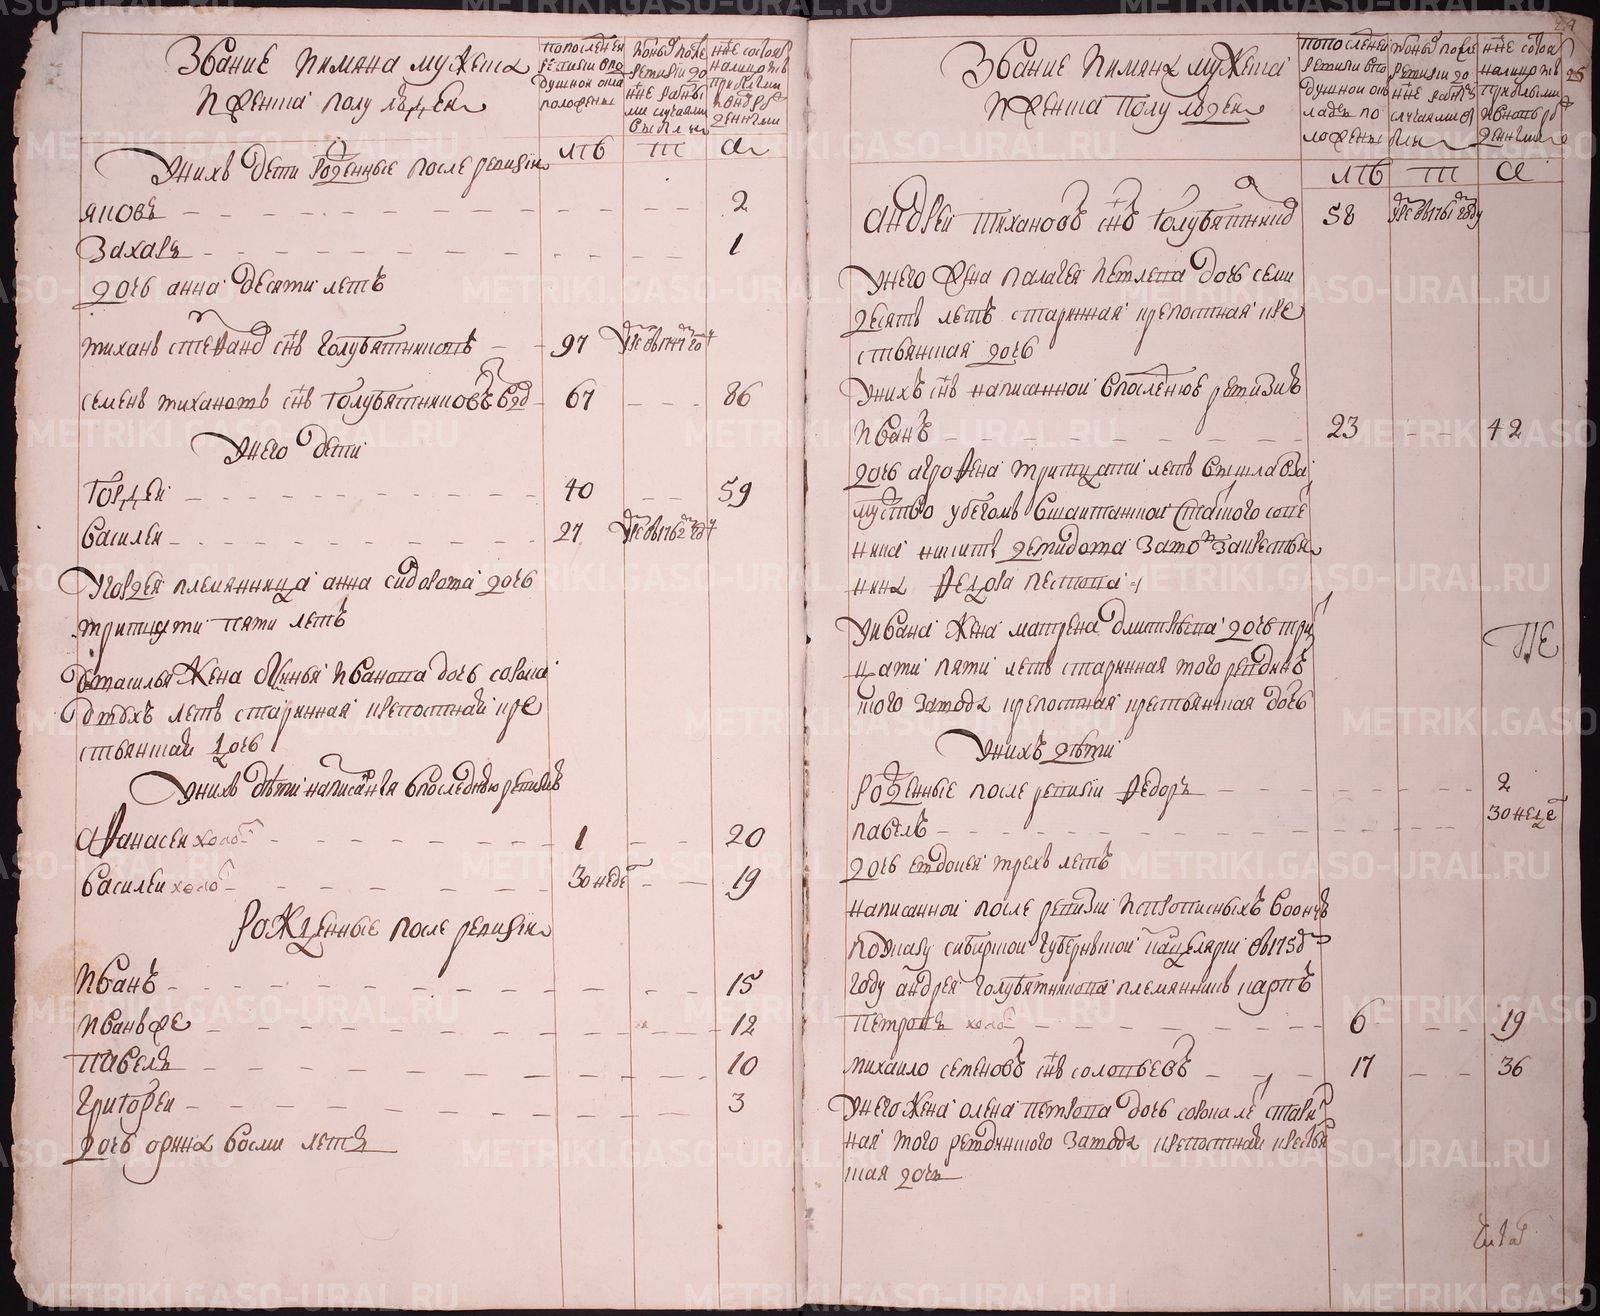 Звание ииМяна мужеска
и женска полу людеи
попоследнеи ревизии впо душнои окла положены
изоныхъ после ревизии до нне разны ми случаями выбыли
нне состоя налицо звъ прибылыми и вновь ро жденными
лѣ
Унихъ дети рожденные после ревизiи
яковъ 2
Захаръ 1
дочь анна десяти летъ
тиханъ стефановъ снъ голубятниковъ 97 умре въ1747 году
семенъ тихановъ снъ голубятниковъ вдовъ 67 86
Унего дети
Гордеи 40 59
василеи 27 умре въ1762 году
Угордея племянница анна сидорова дочь
тритцати пяти летъ
Увасилья жена овинья иванова дочь сорока
двухъ летъ старинная крепостная кре
стьянская дочь
Унихъ дѣти написанныя впоследнюю ревизию
Афанасеи холо 1 20
василеи холо 30 неде 19
рожденные после ревизiи
иванъ 15
иванъ же 12
павелъ 10
григореи 3
дочь орина восми летъ
Звание ииМяна мужеска
и женска полу людеи
попоследнеи ревизии впо душнои окладъ по ложены
изоныхъ после ревизии до нне разны случаями вы были
нне состоя налицо звъ прибылыми и вновь ро жденными
25
лѣ
андреи тихановъ снъ голубятников 58 умре въ1761 году
Унего жена палагея ивлева дочь семи
десятъ летъ старинная крепостная кре
стьянская дочь
Унихъ снъ написаннои впоследнюе ревизию
иванъ 23 42
дочь агрофена тритцати летъ вышла вза
мужство убегомъ вшаитанскои статского совe
ника никиты демидова заводъ закрестья
нина федора пестова
Уивана жена матрена дмитревна дочь три
цати пяти летъ старинная того ревдин
ского завода крепостная крестьянская дочь
Унихъ дѣти
рожденные после ревизiи федоръ 2
павелъ 30 неде
дочь евдокея трехъ летъ
написаннои после ревизiи испрописныхъ воонои
поуказу сибирскои губернскои канцелярiи въ175
году андрея голубятникова племянникъ карпъ
петровъ холо 6 19
михаило семеновъ снъ соловьевъ 17 36
Унего жена олена петрова дочь сорока ле старин
ная того ревдинского завода крепостная крестьян
ская дочь